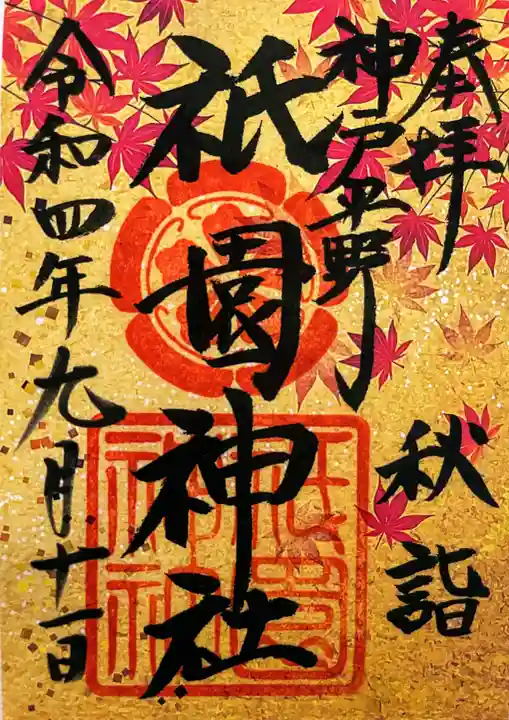 奉拝
秋詣
神戸平野
祇園神社
令和四年九月十一日